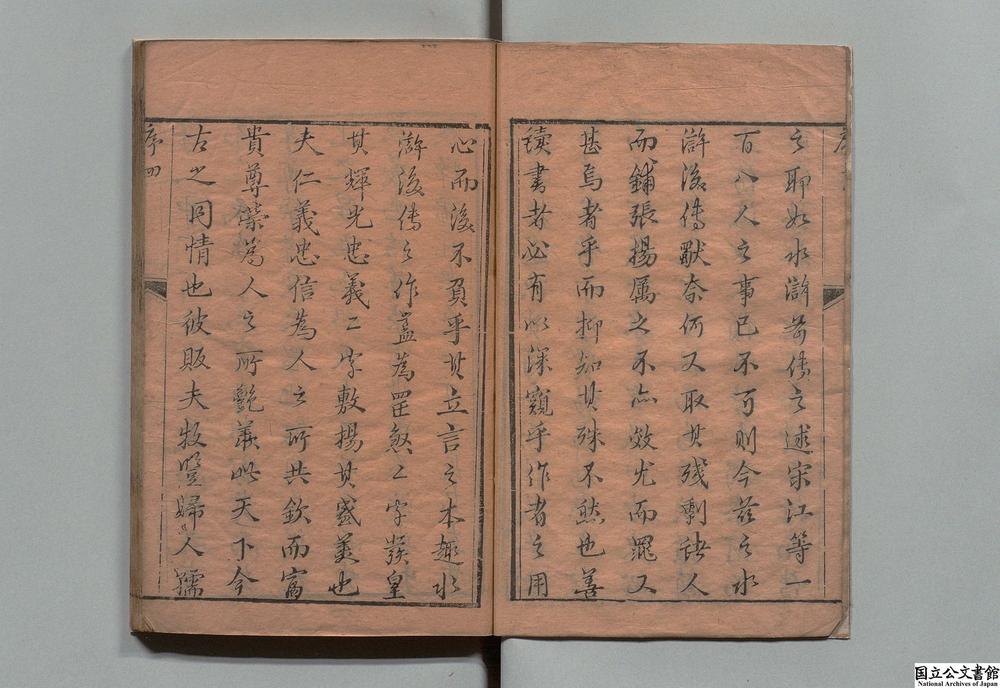 之耶如水滸前傳之述宋江等一
百八人之事已不可則今茲之水
滸後傳獸奈何又取其殘剩諸人
而鋪張揚厲之不亦效尤而罪又
甚焉者乎而抑知其殊不然也善
讀書者必有以深窺乎作者之用
心而後不負乎其立言之本趣水
滸後傳之作蓋為罡煞二字發皇
其輝光忠義二字敷揚其盛美也
夫仁義忠信為人之所共欽而富
貴尊榮為人之所艷羨此天下今
古之同情也彼販夫牧豎婦人孺
序四
国立公文書館
National Archives of Japan